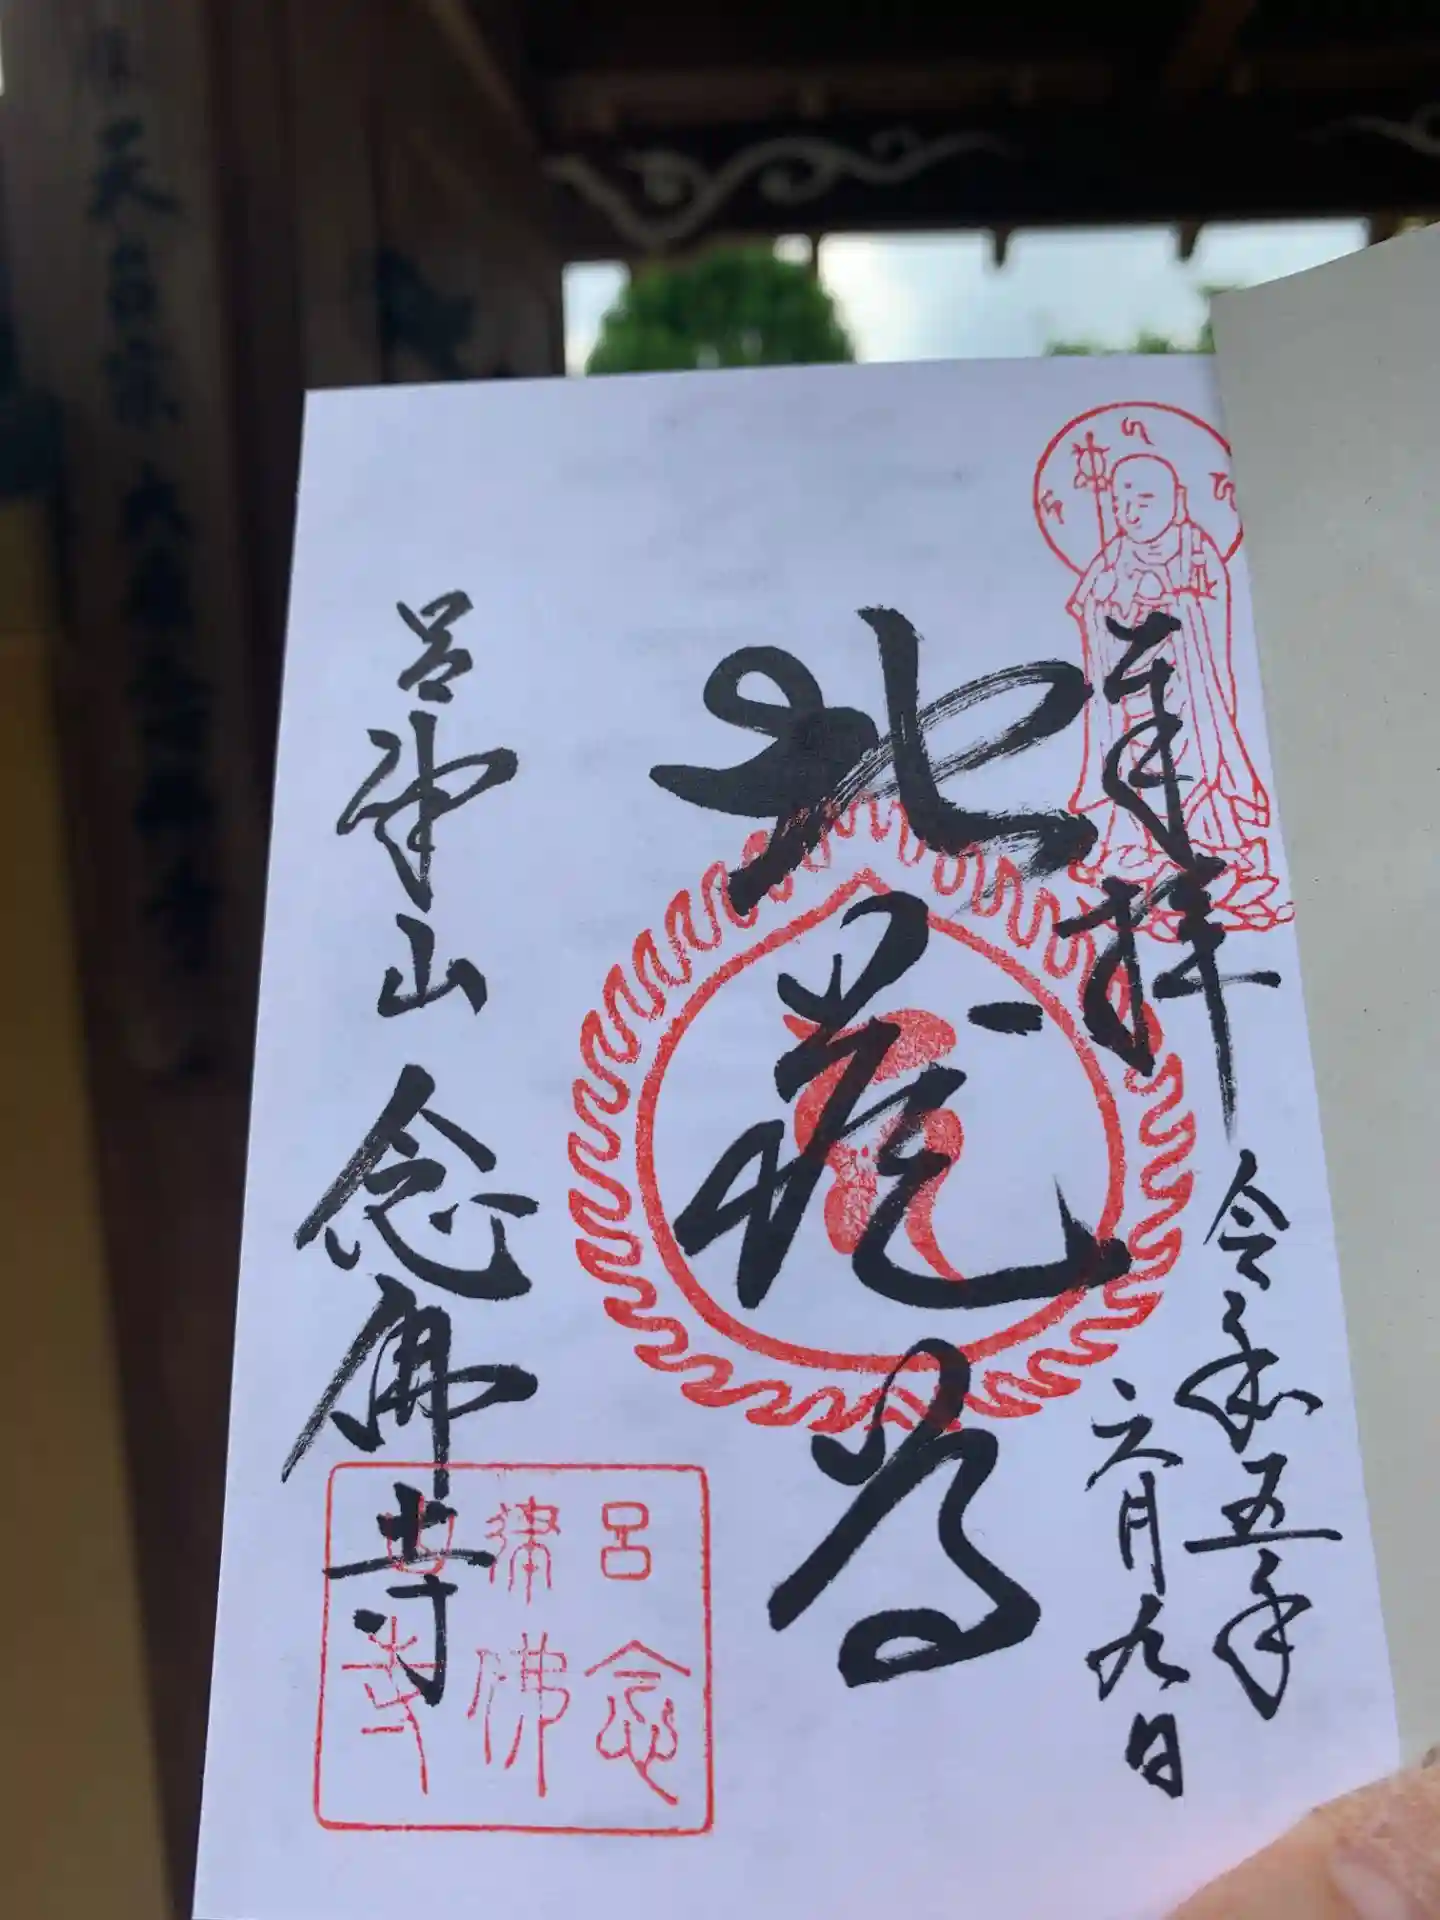 奉拝
令和五年
六月九日
地蔵尊
呂律山 念佛寺
呂念
律佛
山寺